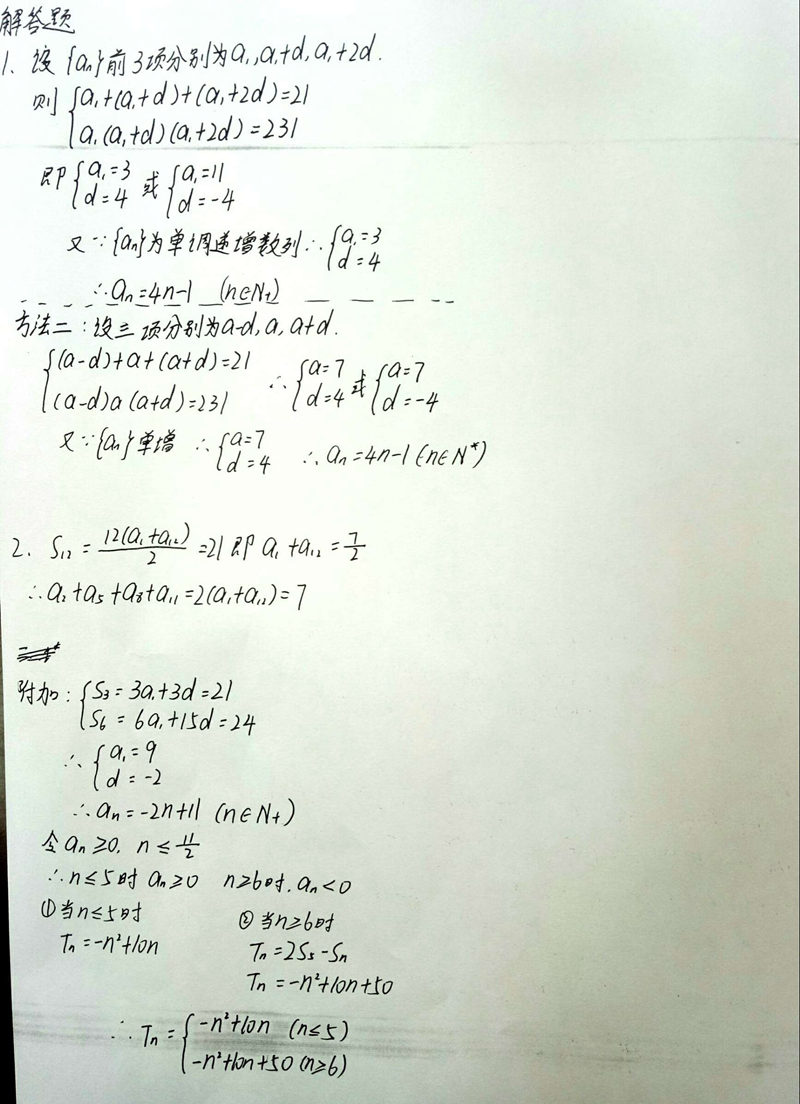 解答题
1、设{an}前3项分别为a₁,a₁+d,a₁+2d.
则{a₁+(a₁+d)+(a₁+2d)=21
a₁(a₁+d)(a₁+2d)=231
即{a₁=3 d=4 或{a₁=11 d=-4
又∵{an}为单调递增数列∴{a₁=3 d=4
∴an=4n-1 (n∈N₊)
方法二:设三项分别为a-d,a,a+d.
{(a-d)+a+(a+d)=21
(a-d)a(a+d)=231 ∴{a=7 d=4 或{a=7 d=-4
又∵{an}单增 ∴{a=7 d=4 ∴an=4n-1(n∈N*)
2、S₁₂=12(a₁+a₁₂)/2=21即a₁+a₁₂=7/2
∴a₂+a₅+a₈+a₁₁=2(a₁+a₁₂)=7
附加:{S₃=3a₁+3d=21
S₆=6a₁+15d=24
∴{a₁=9
d=-2
∴an=-2n+11 (n∈N₊)
令an≥0, n≤11/2
∴n≤5时 an≥0 n≥6时,an<0
①当n≤5时
Tn=-n²+10n
②当n≥6时
Tn=2S₅-Sn
Tn=-n²+10n+50
∴Tn={-n²+10n (n≤5)
-n²+10n+50(n≥6)